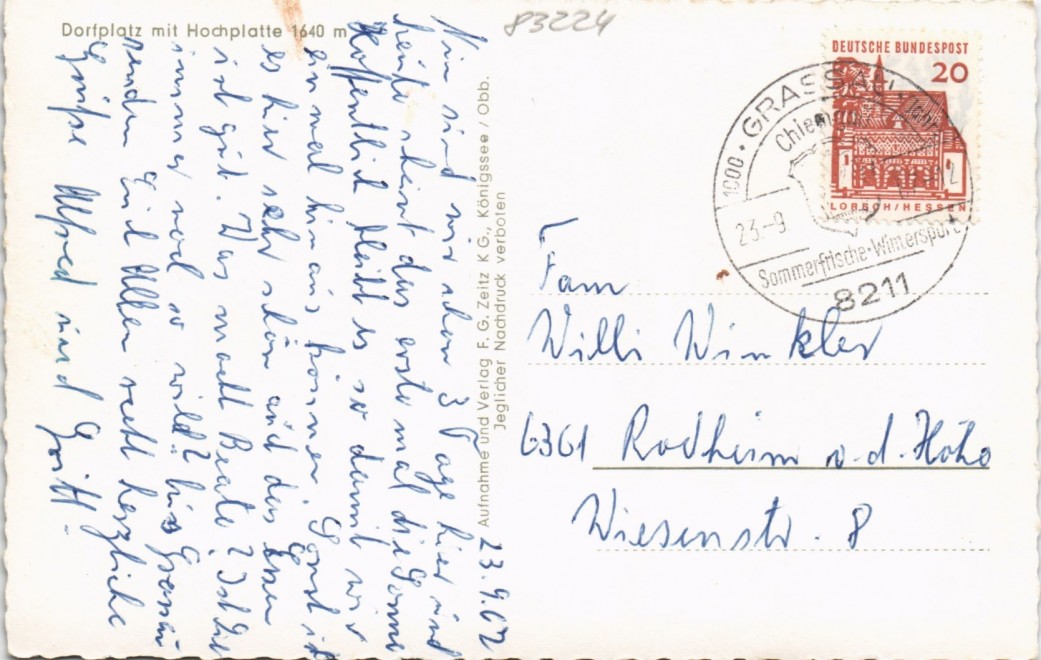 Dorfplatz mit Hochplatte 1640 m
83224
23.9.67
Nun sind wir schon 3 Tage hier und
heute scheint das erste mal die Sonne
Hoffentlich bleibt es so damit wir
einmal hinaus können. Sonst ist
es hier sehr schön auch das Essen
ist gut. Was macht Beate? Ist sie
immer noch so wild? Aus Grassau
senden Euch Allen recht herzliche
Grüße Alfred und Gritt.
Aufnahme und Verlag F. G. Zeitz K G., Königssee / Obb.
Jeglicher Nachdruck verboten
DEUTSCHE BUNDESPOST
20
LORSCH/HESSEN
GRASSAU
Chiemgau
1000
23.-9
Sommerfrische-Wintersport
8211
Fam
Willi Winkler
6361 Rodheim v.d.Höhe
Wiesenstr. 8